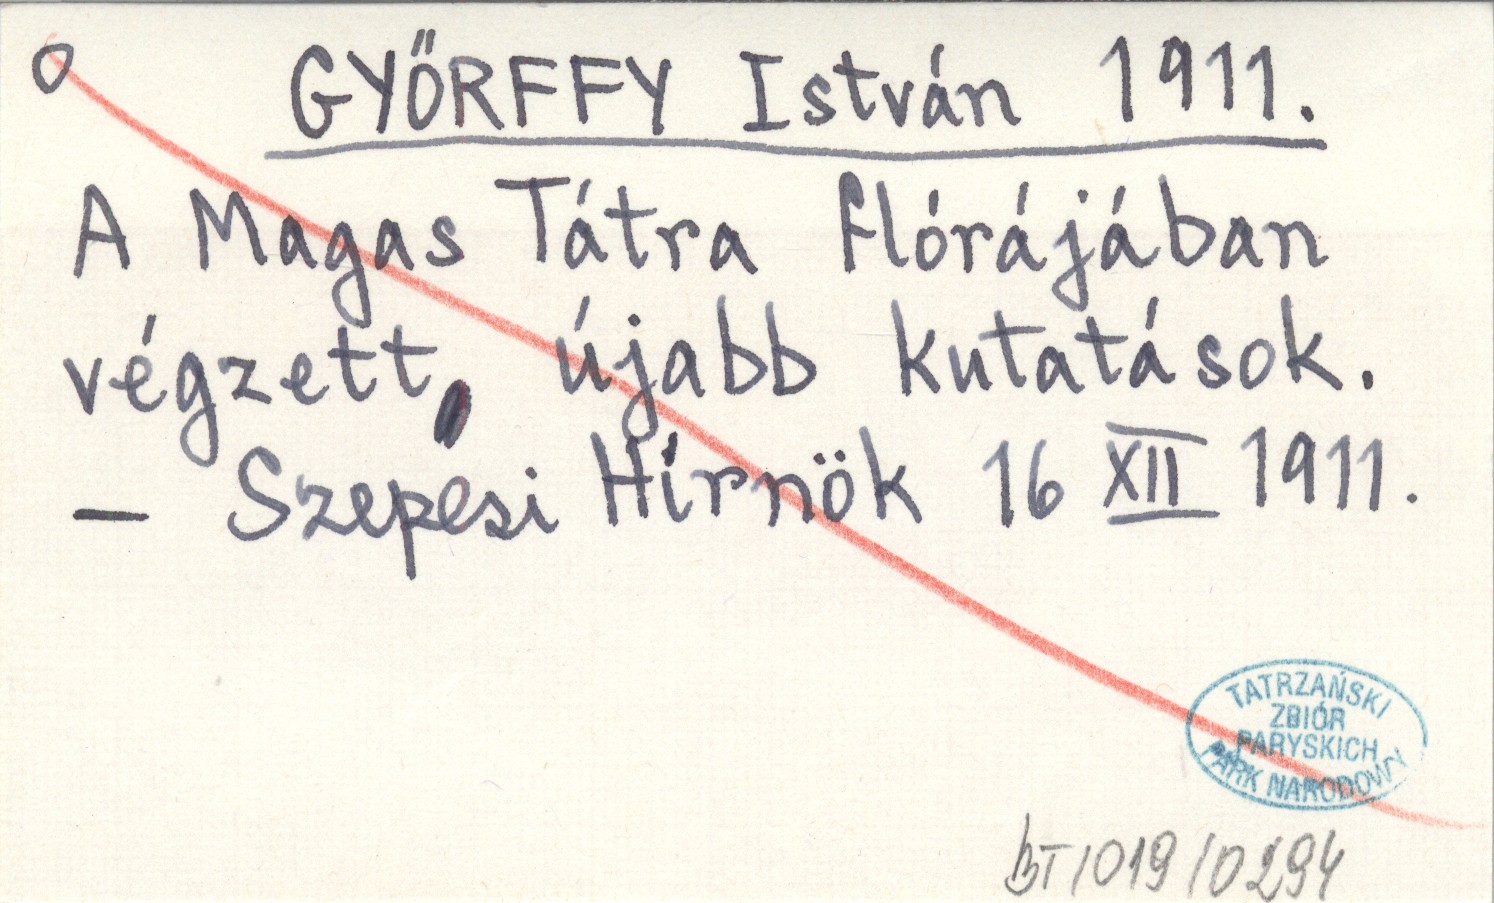 O GYŐRFFY István 1911.
A Magas Tátra flórájában
végzett újabb kutatások.
— Szepesi Hírnök 16 XII 1911.
TATRZAŃSKI
ZBIÓR
PARYSKICH
PARK NARODOWY
BT/019/0294